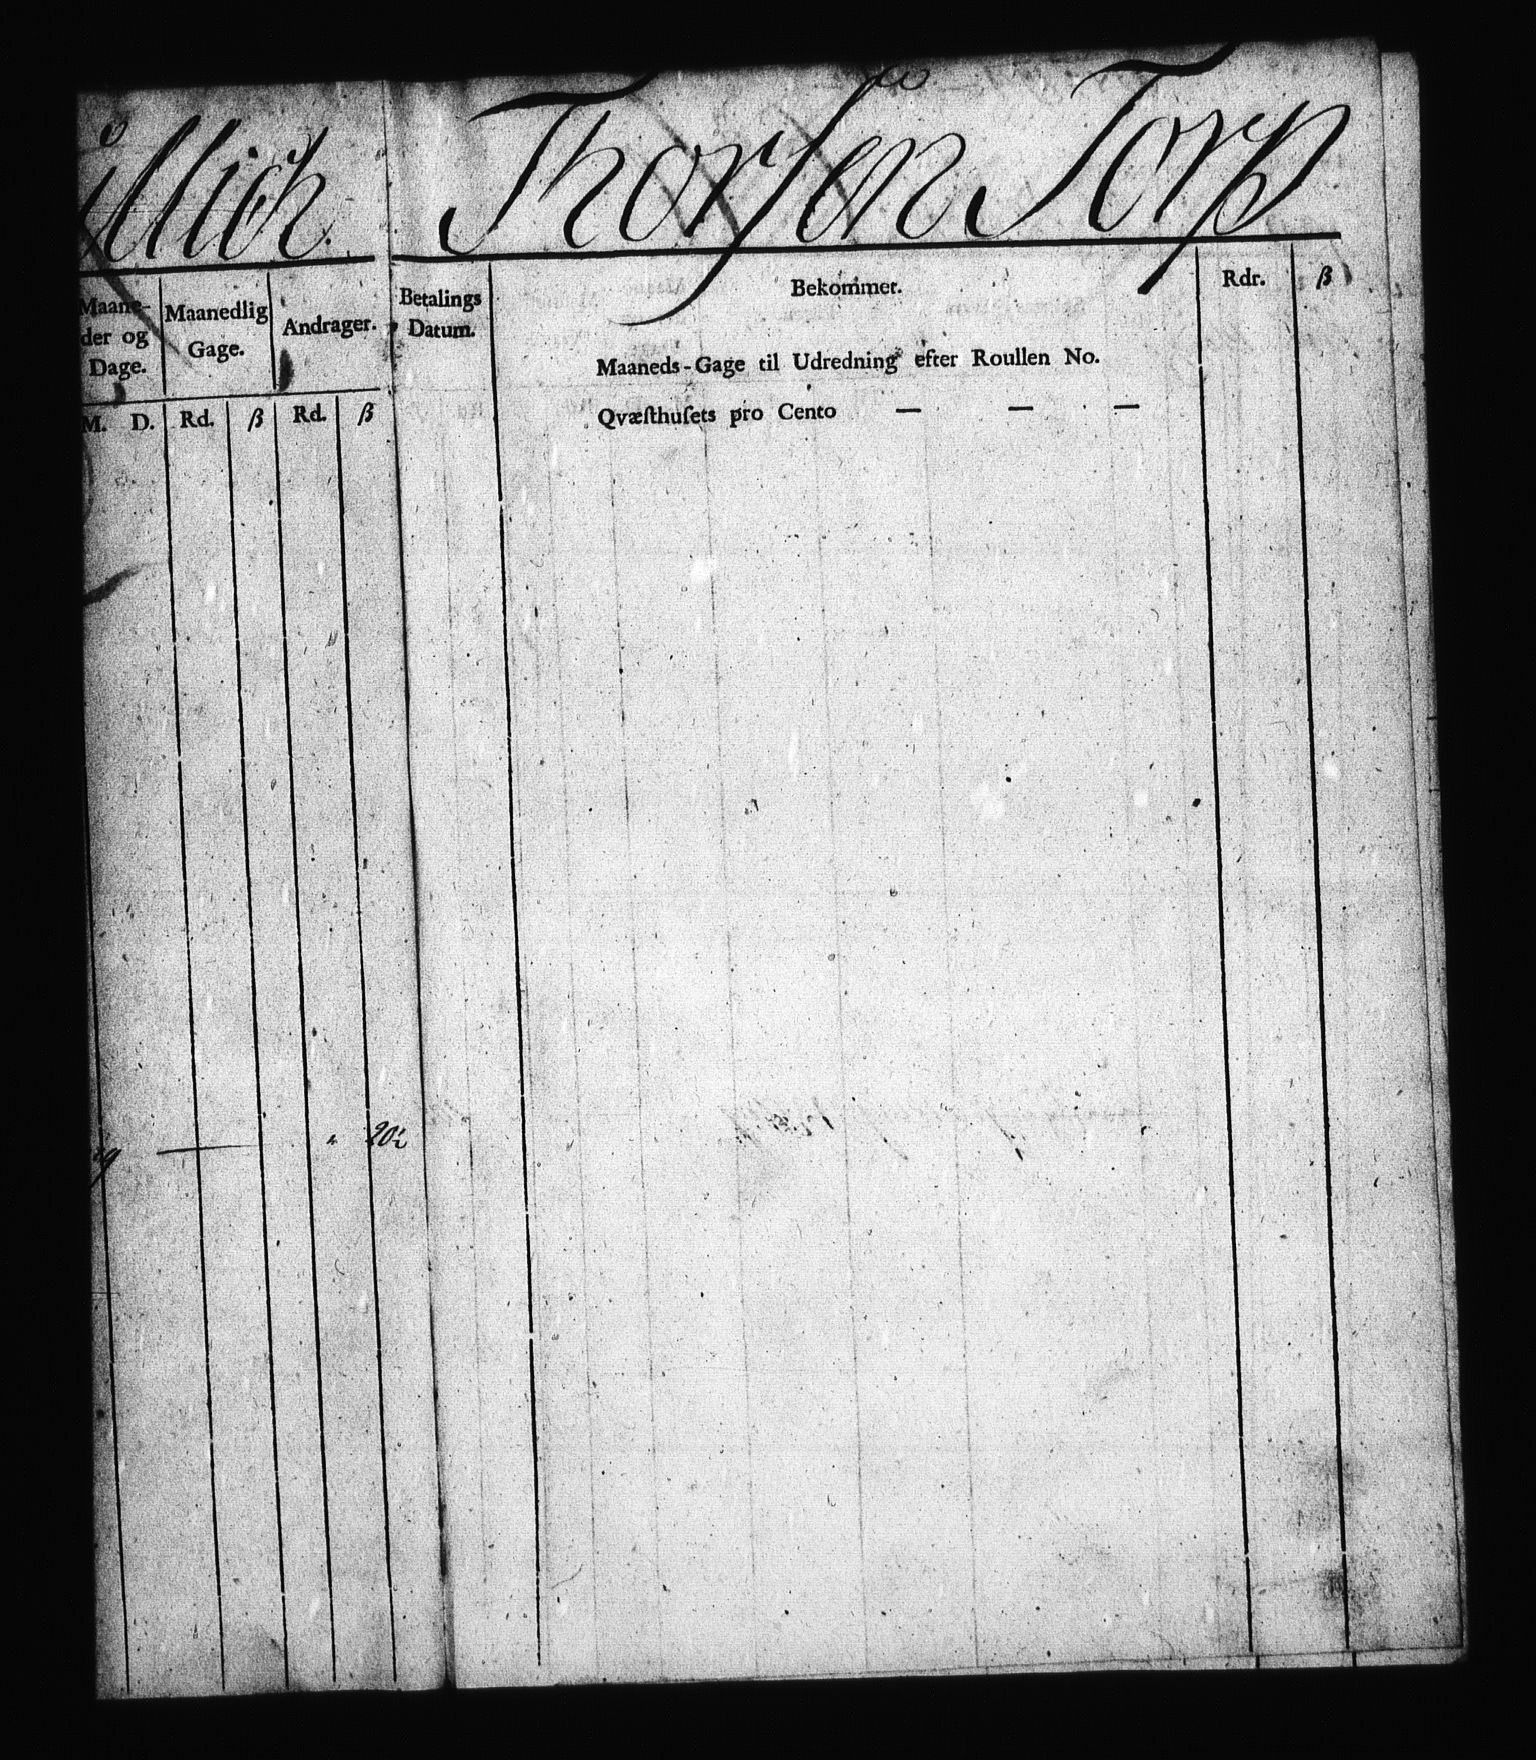 Mich. Thorsen Torp
Maane- der og Dage. Maanedlig Gage. Andrager. Betalings Datum. Bekommer. Rdr. ß
Maaneds-Gage til Udredning efter Roullen No.
Qvæſthuſets pro Cento — — —
M. D. Rd. ß Rd. ß
" 20½